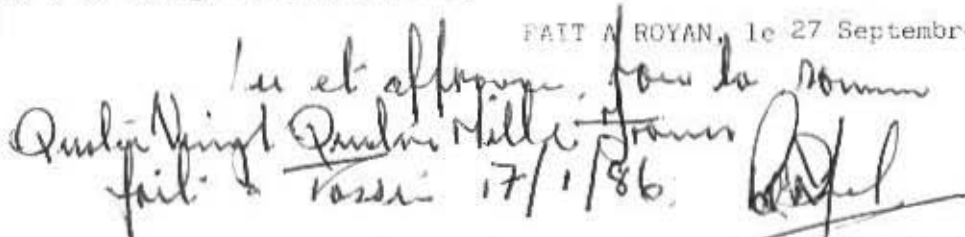 FAIT A ROYAN, le 27 Septembr
lu et approuvé, pour la somme
Quatre Vingt Quatre Mille Francs
fait à 17/1/86